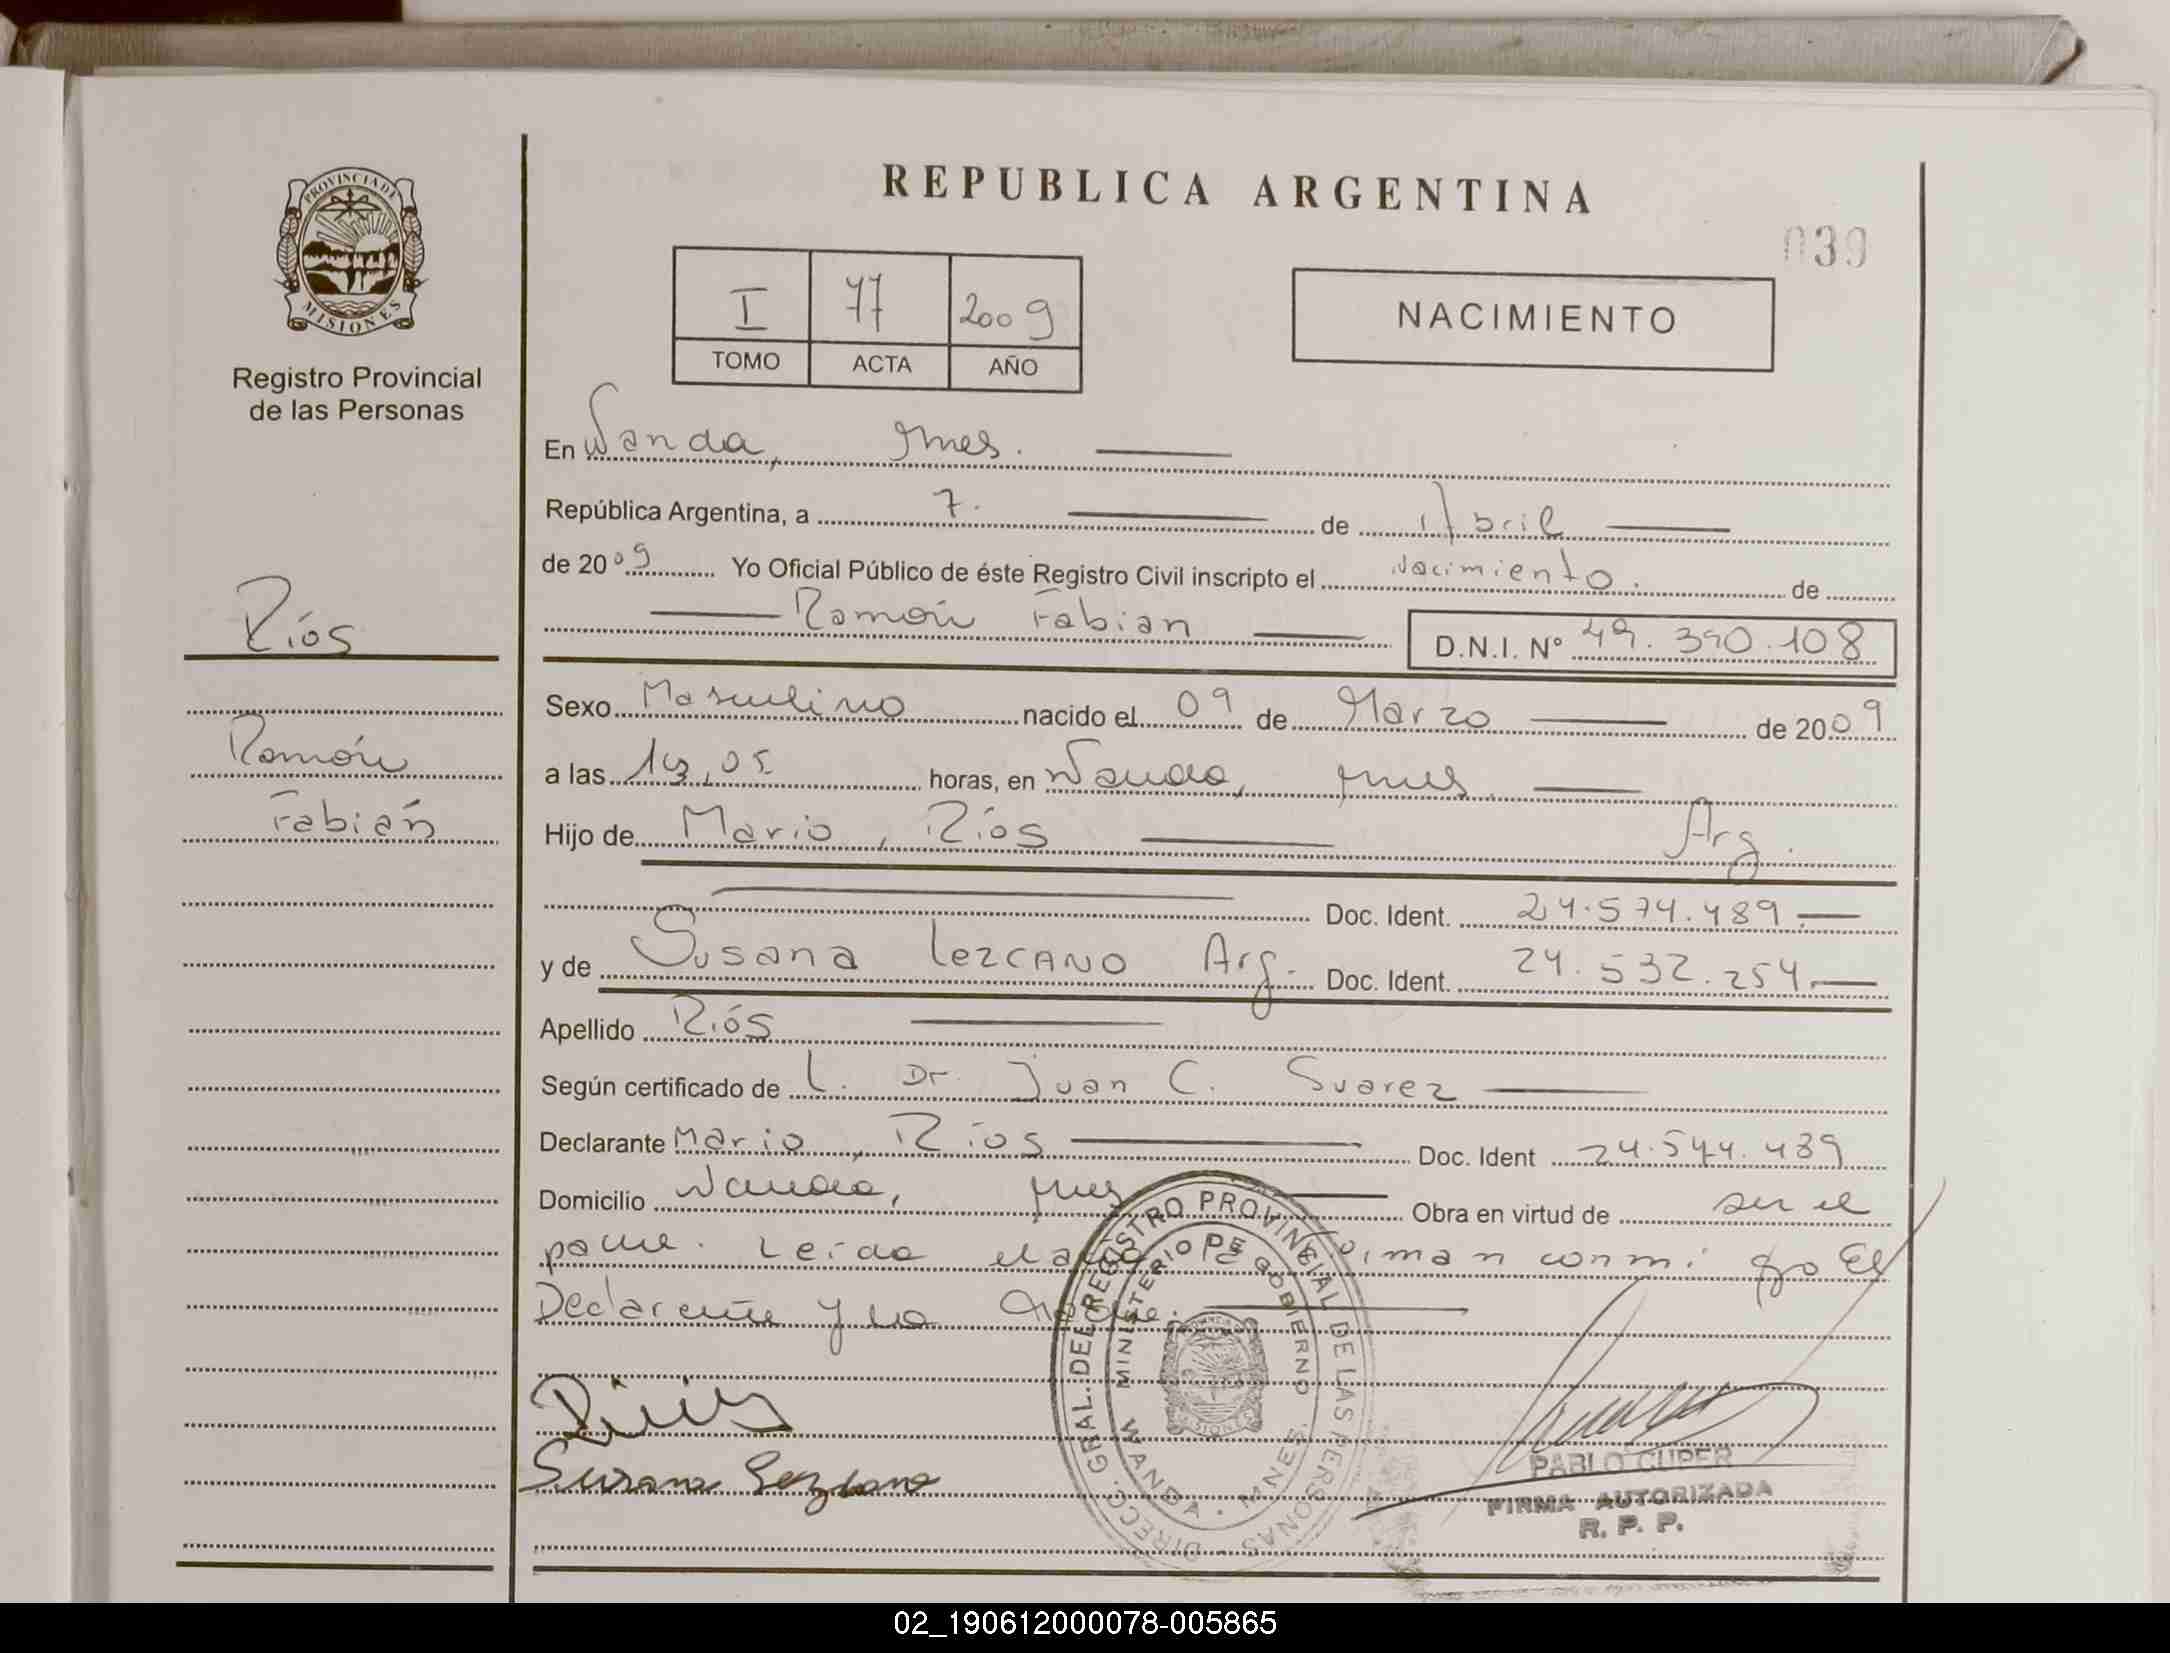 REPUBLICA ARGENTINA
039
PROVINCIA DE
MISIONES
Registro Provincial
de las Personas
I 77 2009
TOMO ACTA AÑO
NACIMIENTO
En Wanda, Mnes.
República Argentina, a 7. de Abril
de 2009 Yo Oficial Público de éste Registro Civil inscripto el Nacimiento. de
Ramón Fabian D.N.I. Nº 49.390.108
Ríos
Ramón
Fabián
Sexo Masculino nacido el 09 de Marzo de 2009
a las horas, en Wanda, Mnes.
Hijo de Mario, Ríos Arg.
Doc. Ident. 24.574.489
y de Susana Lezcano Arg. Doc. Ident. 24.532.254
Apellido Ríos
Según certificado de L. Dr. Juan C. Suarez
Declarante Mario, Ríos Doc. Ident
Domicilio Wanda, Mnes Obra en virtud de ser el
padre. Leida el acta la Firman conmigo El
Declarante y la Madre.
Susana Lezcano
DIRECC. GRAL. DEL REGISTRO PROVINCIAL DE LAS PERSONAS
MINISTERIO DE GOBIERNO
WANDA - MNES.
PABLO CUPER
FIRMA AUTORIZADA
R. P. P.
02_190612000078-005865